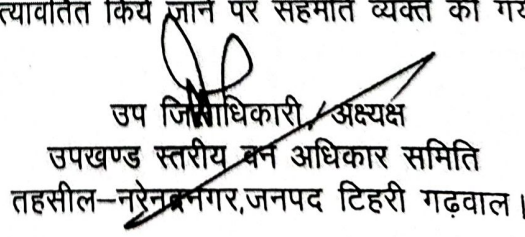 त्यावर्तित किये जाने पर सहमति व्यक्त की गय
उप जिलाधिकारी/अक्ष्यक्ष
उपखण्ड स्तरीय वन अधिकार समिति
तहसील–नरेन्द्रनगर,जनपद टिहरी गढ़वाल।